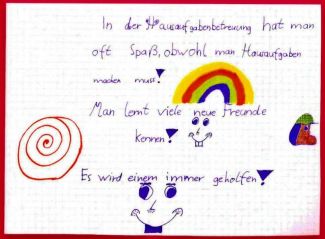 In der Hausaufgabenbetreuung hat man
oft Spaß, obwohl man Hausaufgaben
machen muss!
Man lernt viele neue Freunde
kennen!
Es wird einem immer geholfen!